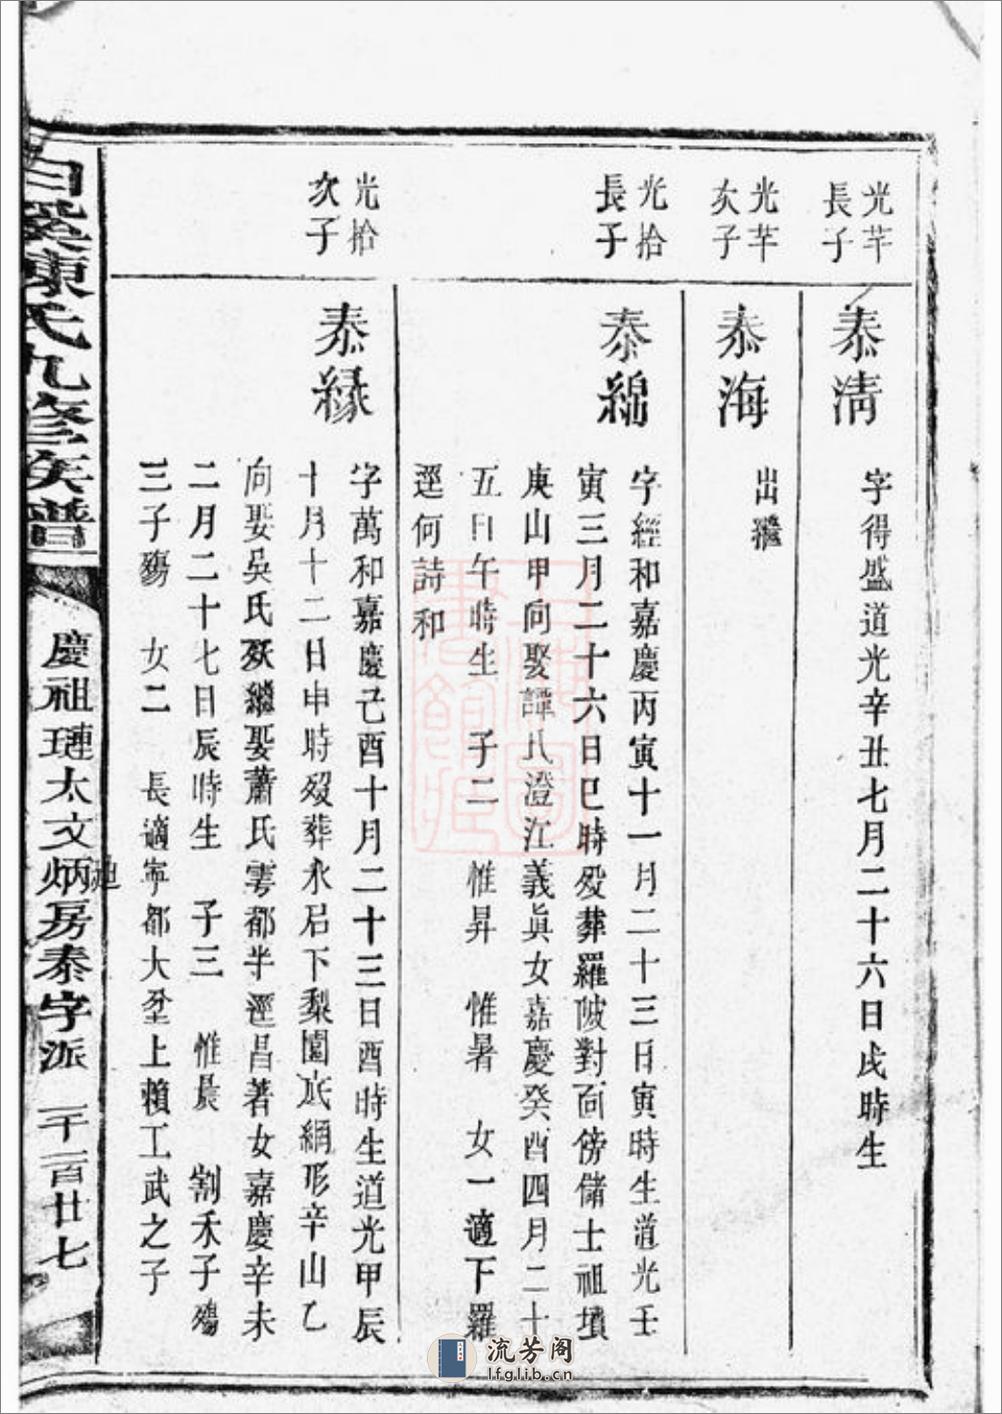 光芊
長子
泰清
字得盛道光辛丑七月二十六日戌時生
光芊
次子
泰海
出繼
光拾
長子
泰綿
字經和嘉慶丙寅十一月二十三日寅時生道光壬
寅三月二十六日巳時歿葬羅陂對面傍儲士祖墳
庚山甲向娶譚氏澄江義眞女嘉慶癸酉四月二十
五日午時生 子二 惟昇 惟暑 女一適下羅
逕何詩和
光拾
次子
泰緣
字萬和嘉慶己酉十月二十三日酉時生道光甲辰
十月十二日申時歿葬永石下梨園底網形辛山乙
向娶吳氏歿繼娶蕭氏雩都半逕昌著女嘉慶辛未
二月二十七日辰時生 子三 惟晨 割禾子殤
三子殤 女二 長適寧都大坌上賴工武之子
白溪陳氏九修族譜
慶祖璉太文炳房泰字派
一千一百廿七
流芳阁
lfglib.cn